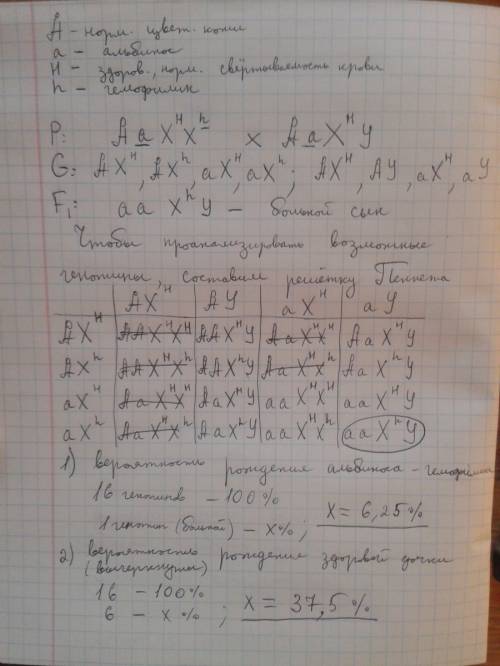 A - норм. цвет. кожи
a - альбинос
H - здоров., норм. свёртываемость крови
h - гемофилик
P: A a X^H X^h × A a X^H У
G: A X^H, A X^h, a X^H, a X^h; A X^H, A У, a X^H, a У
F₁: a a X^h У - больной сын
Чтобы проанализировать возможные
генотипы, составим решётку Пеннета
A X^H | A У | a X^H | a У
A X^H | A A X^H X^H | A A X^H У | A a X^H X^H | A a X^H У
A X^h | A A X^H X^h | A A X^h У | A a X^H X^h | A a X^h У
a X^H | A a X^H X^H | A a X^H У | a a X^H X^H | a a X^H У
a X^h | A a X^H X^h | A a X^h У | a a X^H X^h | a a X^h У
1) вероятность рождение альбиноса - гемофилика
16 генотипов - 100%
1 генотип (больной) - x% ; x = 6,25%
2) вероятность рождение здоровой дочки
(вычеркнуты)
16 - 100%
6 - x% ; x = 37,5%